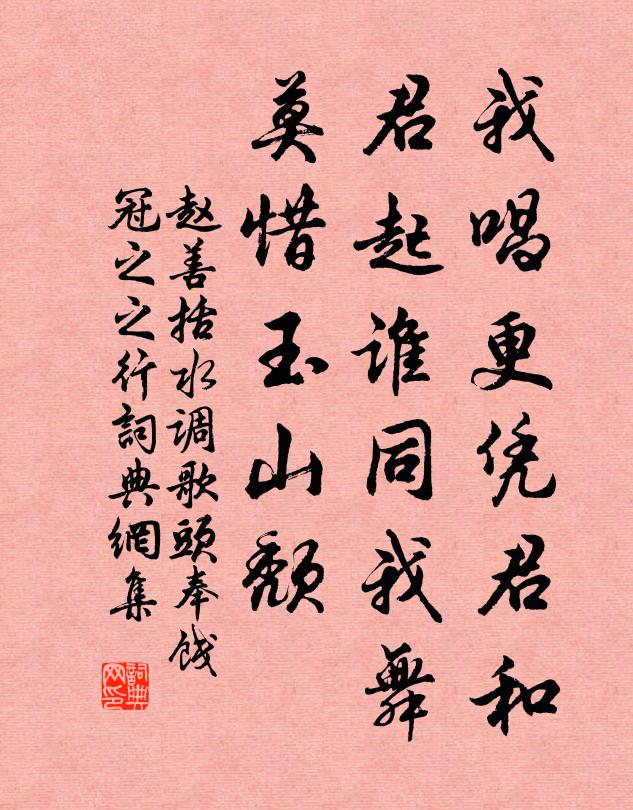 我唱更凭君和
君起谁同我舞
莫惜玉山颓
赵善括水调歌頭奉餞
冠之之行詞典網集
詞典网印